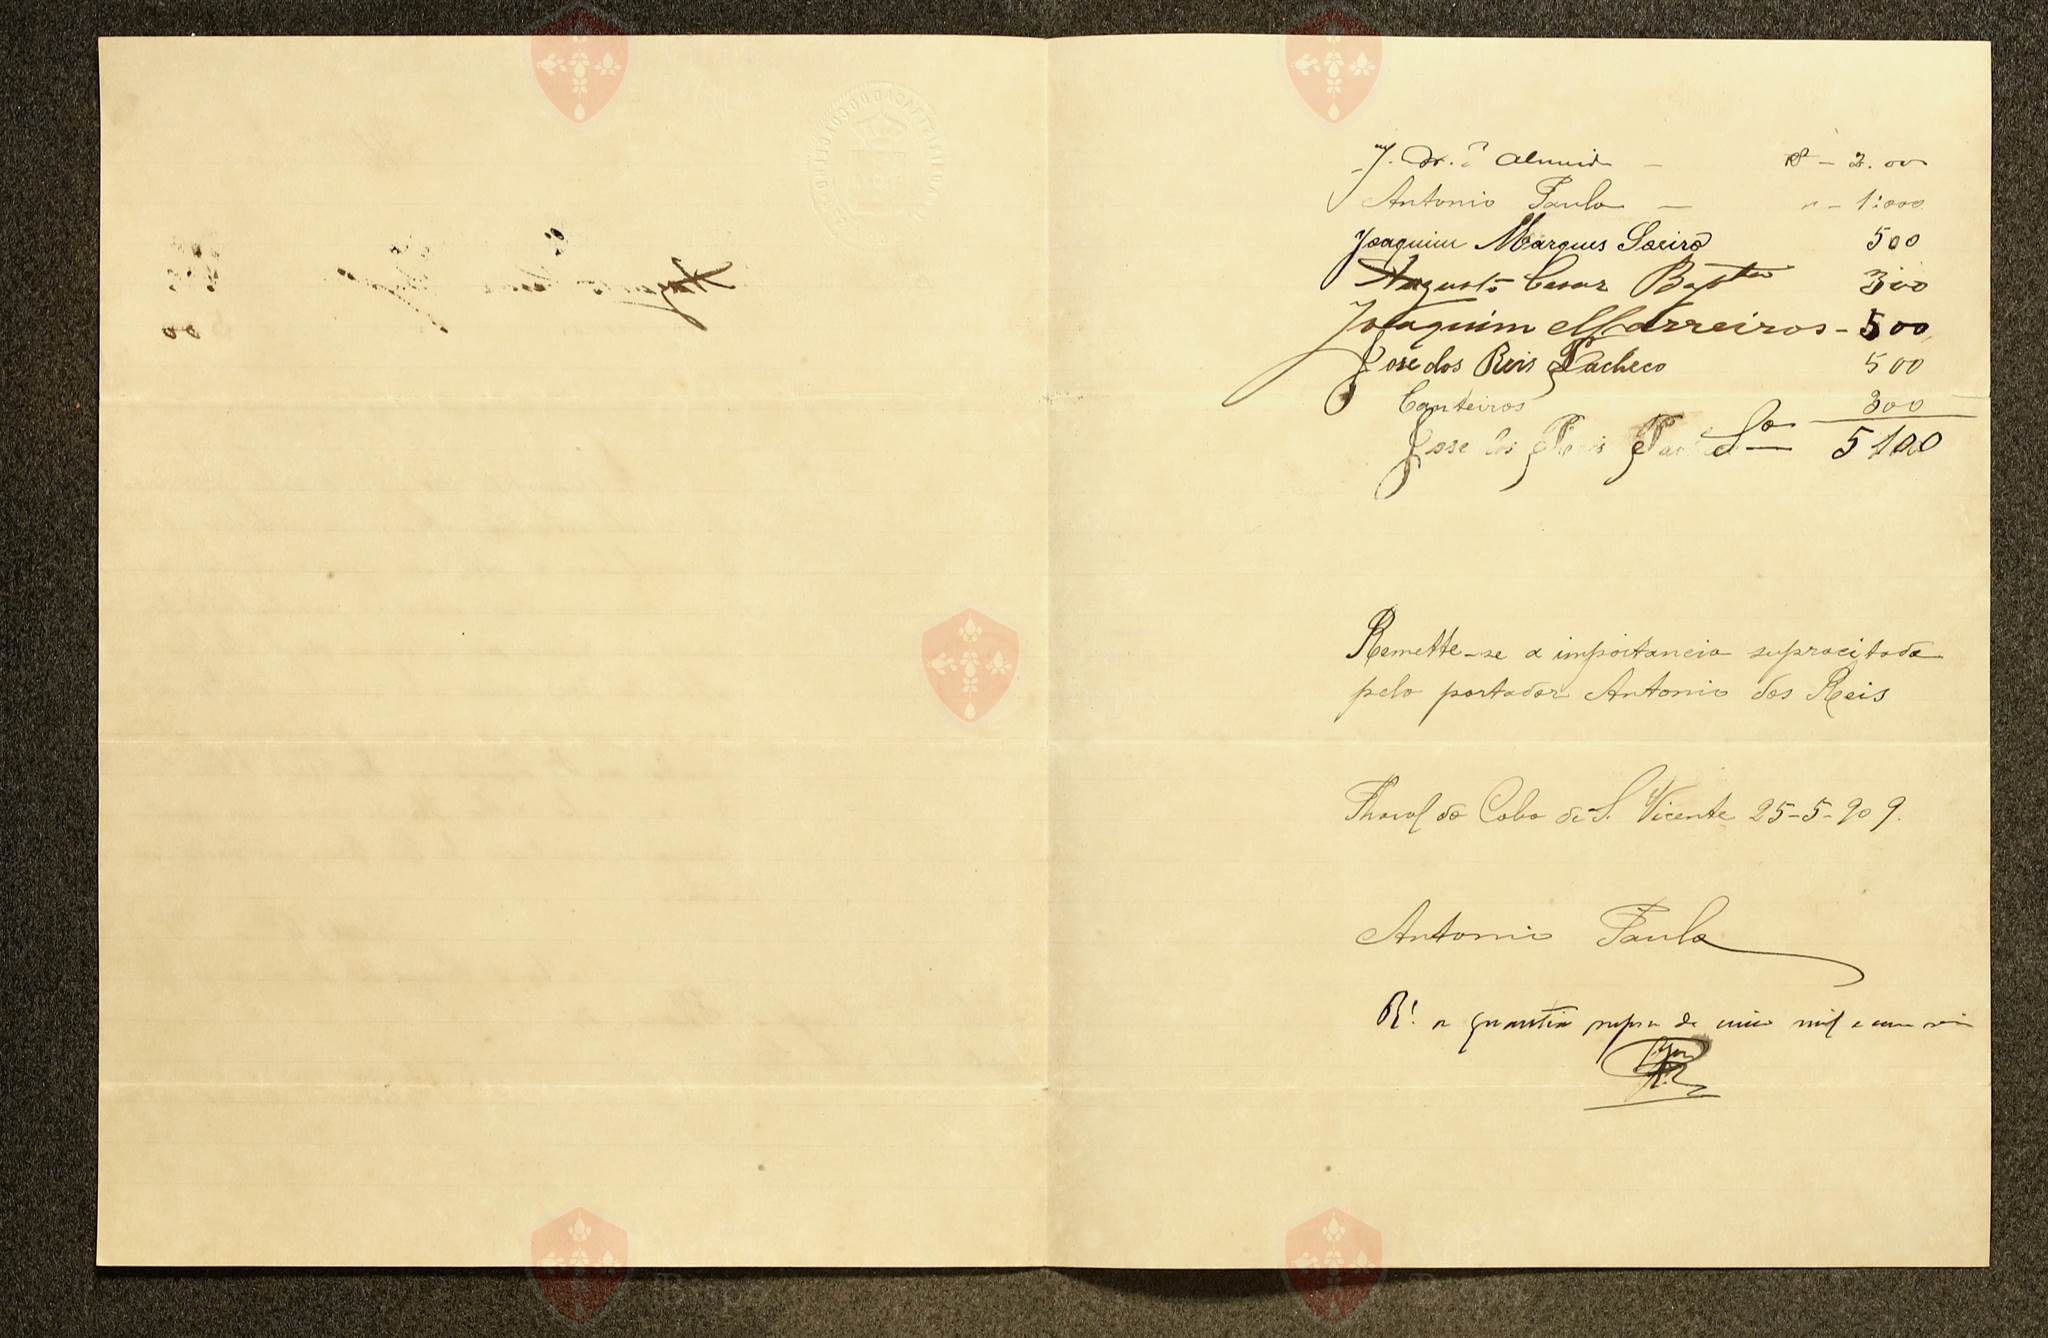 J. Almeida — — 2.000
Antonio Paula — " — 1:000
Joaquim Marques Soeiro 500
Augusto Cesar Baptta 300
Joaquim Marreiros — 500
José dos Reis Pacheco 500
Canteiros 300
Jose dos Reis Pac Sa — 5100
Remette-se a importancia supracitada
pelo portador Antonio dos Reis
Pharol do Cabo de S. Vicente 25-5-909.
Antonio Paula
R. a quantia supra de cinco mil e cem reis